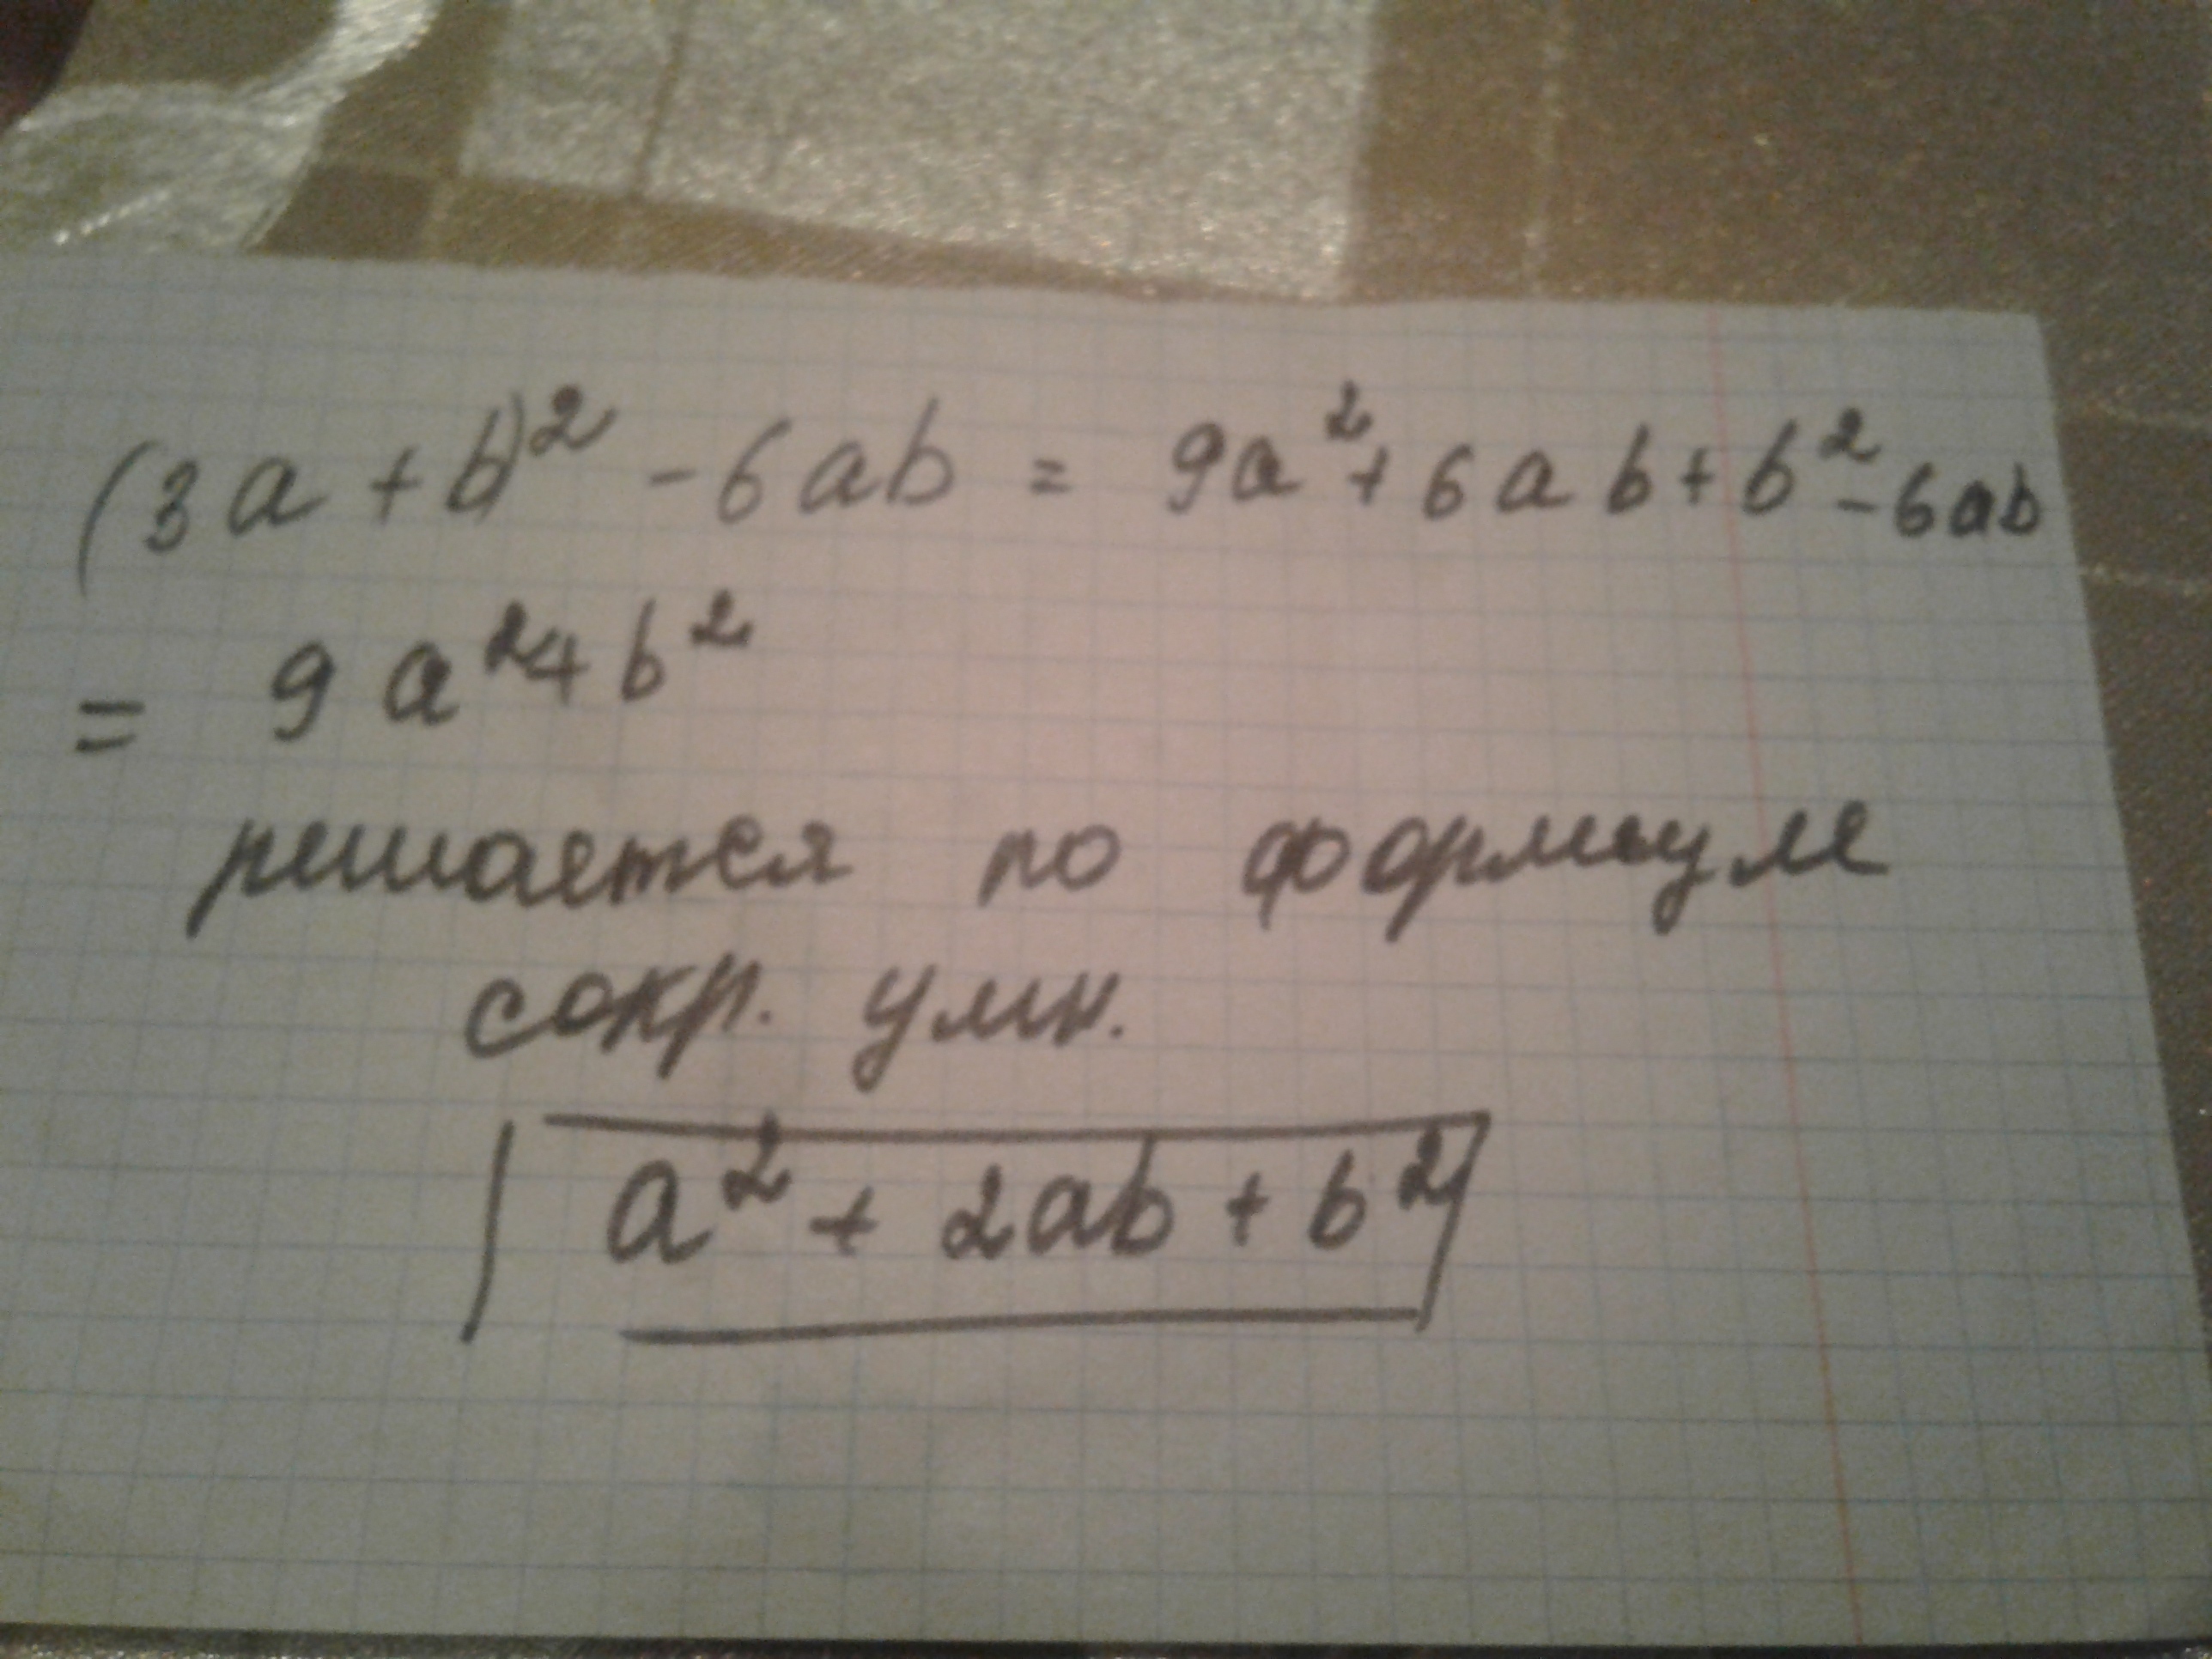 (3a+b)² - 6ab = 9a² + 6ab + b² - 6ab
= 9a² + b²
решается по формуле
сокр. умн.
a² + 2ab + b²